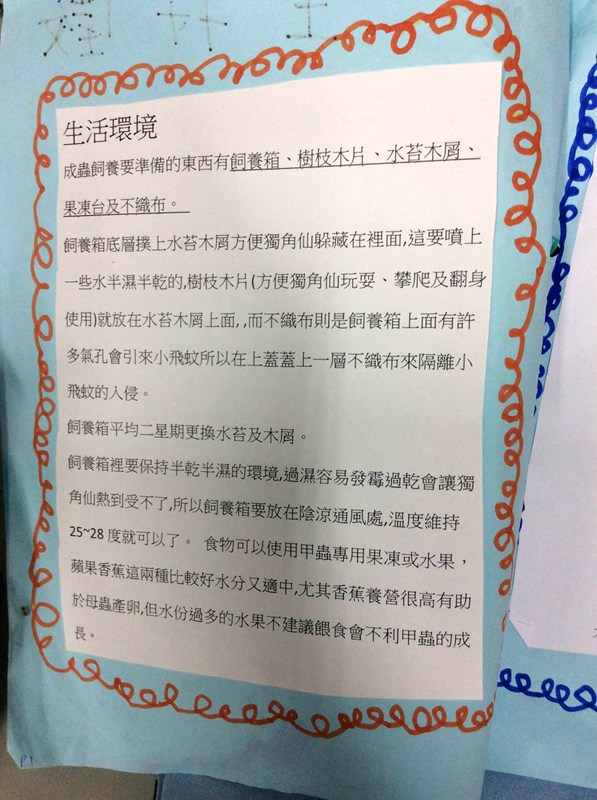 生活環境
成蟲飼養要準備的東西有飼養箱、樹枝木片、水苔木屑、
果凍台及不織布。
飼養箱底層撲上水苔木屑方便獨角仙躲藏在裡面,這要噴上
一些水半濕半乾的,樹枝木片(方便獨角仙玩耍、攀爬及翻身
使用)就放在水苔木屑上面, ,而不織布則是飼養箱上面有許
多氣孔會引來小飛蚊所以在上蓋蓋上一層不織布來隔離小
飛蚊的入侵。
飼養箱平均二星期更換水苔及木屑。
飼養箱裡要保持半乾半濕的環境,過濕容易發霉過乾會讓獨
角仙熱到受不了,所以飼養箱要放在陰涼通風處,溫度維持
25~28 度就可以了。 食物可以使用甲蟲專用果凍或水果，
蘋果香蕉這兩種比較好水分又適中,尤其香蕉養營很高有助
於母蟲產卵,但水份過多的水果不建議餵食會不利甲蟲的成
長。
P1